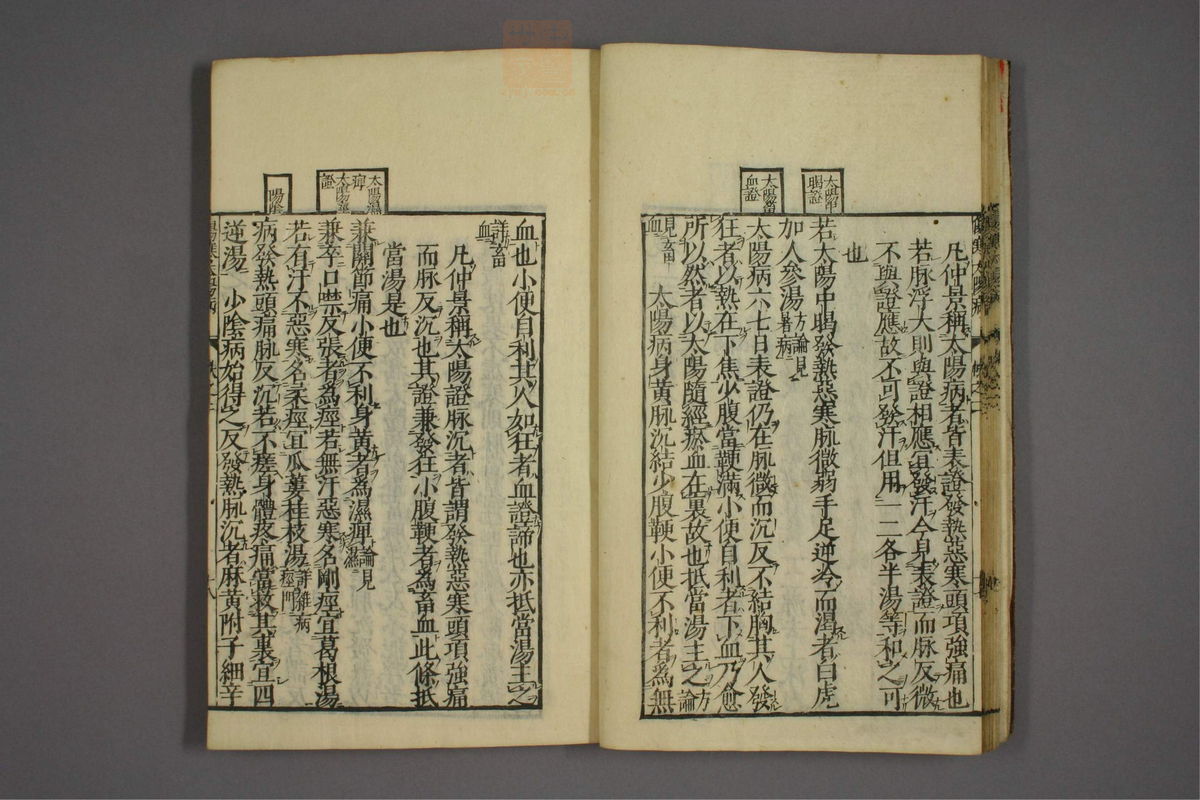 太陽中
暍證
太陽畜
血證
凢仲景稱太陽病者皆表證發熱惡寒頭項強痛也
若脉浮大則與證相應宜發汗今見表證而脉反微
不與證應故不可發汗但用一二各半湯等和之可
也
若太陽中暍發熱惡寒脉微弱手足逆冷而渴者白虎
加人參湯方論見暑病
太陽病六七日表證仍在脉微而沉反不結胸其人發
狂者以熱在下焦少腹當鞕滿小便自利者下血乃愈
所以然者以太陽隨經瘀血在裏故也抵當湯主之方論
見畜血 太陽病身黃脉沉結少腹鞕小便不利者爲無
太陽濕
痺
太陽
證
陽陰
血也小便自利其人如狂者血證諦也亦抵當湯主之
詳畜血
凢仲景稱太陽證脉沉者皆謂發熱惡寒頭項強痛
而脉反沉也其證兼發狂小腹鞕者爲畜血此條抵
當湯是也
兼關節痛小便不利身黃者爲濕痺論見濕
兼卒口噤反張者爲痙若無汗惡寒名剛痙宜葛根湯
若有汗不惡寒名柔痙宜瓜蔞桂枝湯詳雜病痙門
病發熱頭痛脉反沉若不瘥身體疼痛當救其裏宜四
逆湯 少陰病始得之反發熱脉沉者麻黃附子細辛